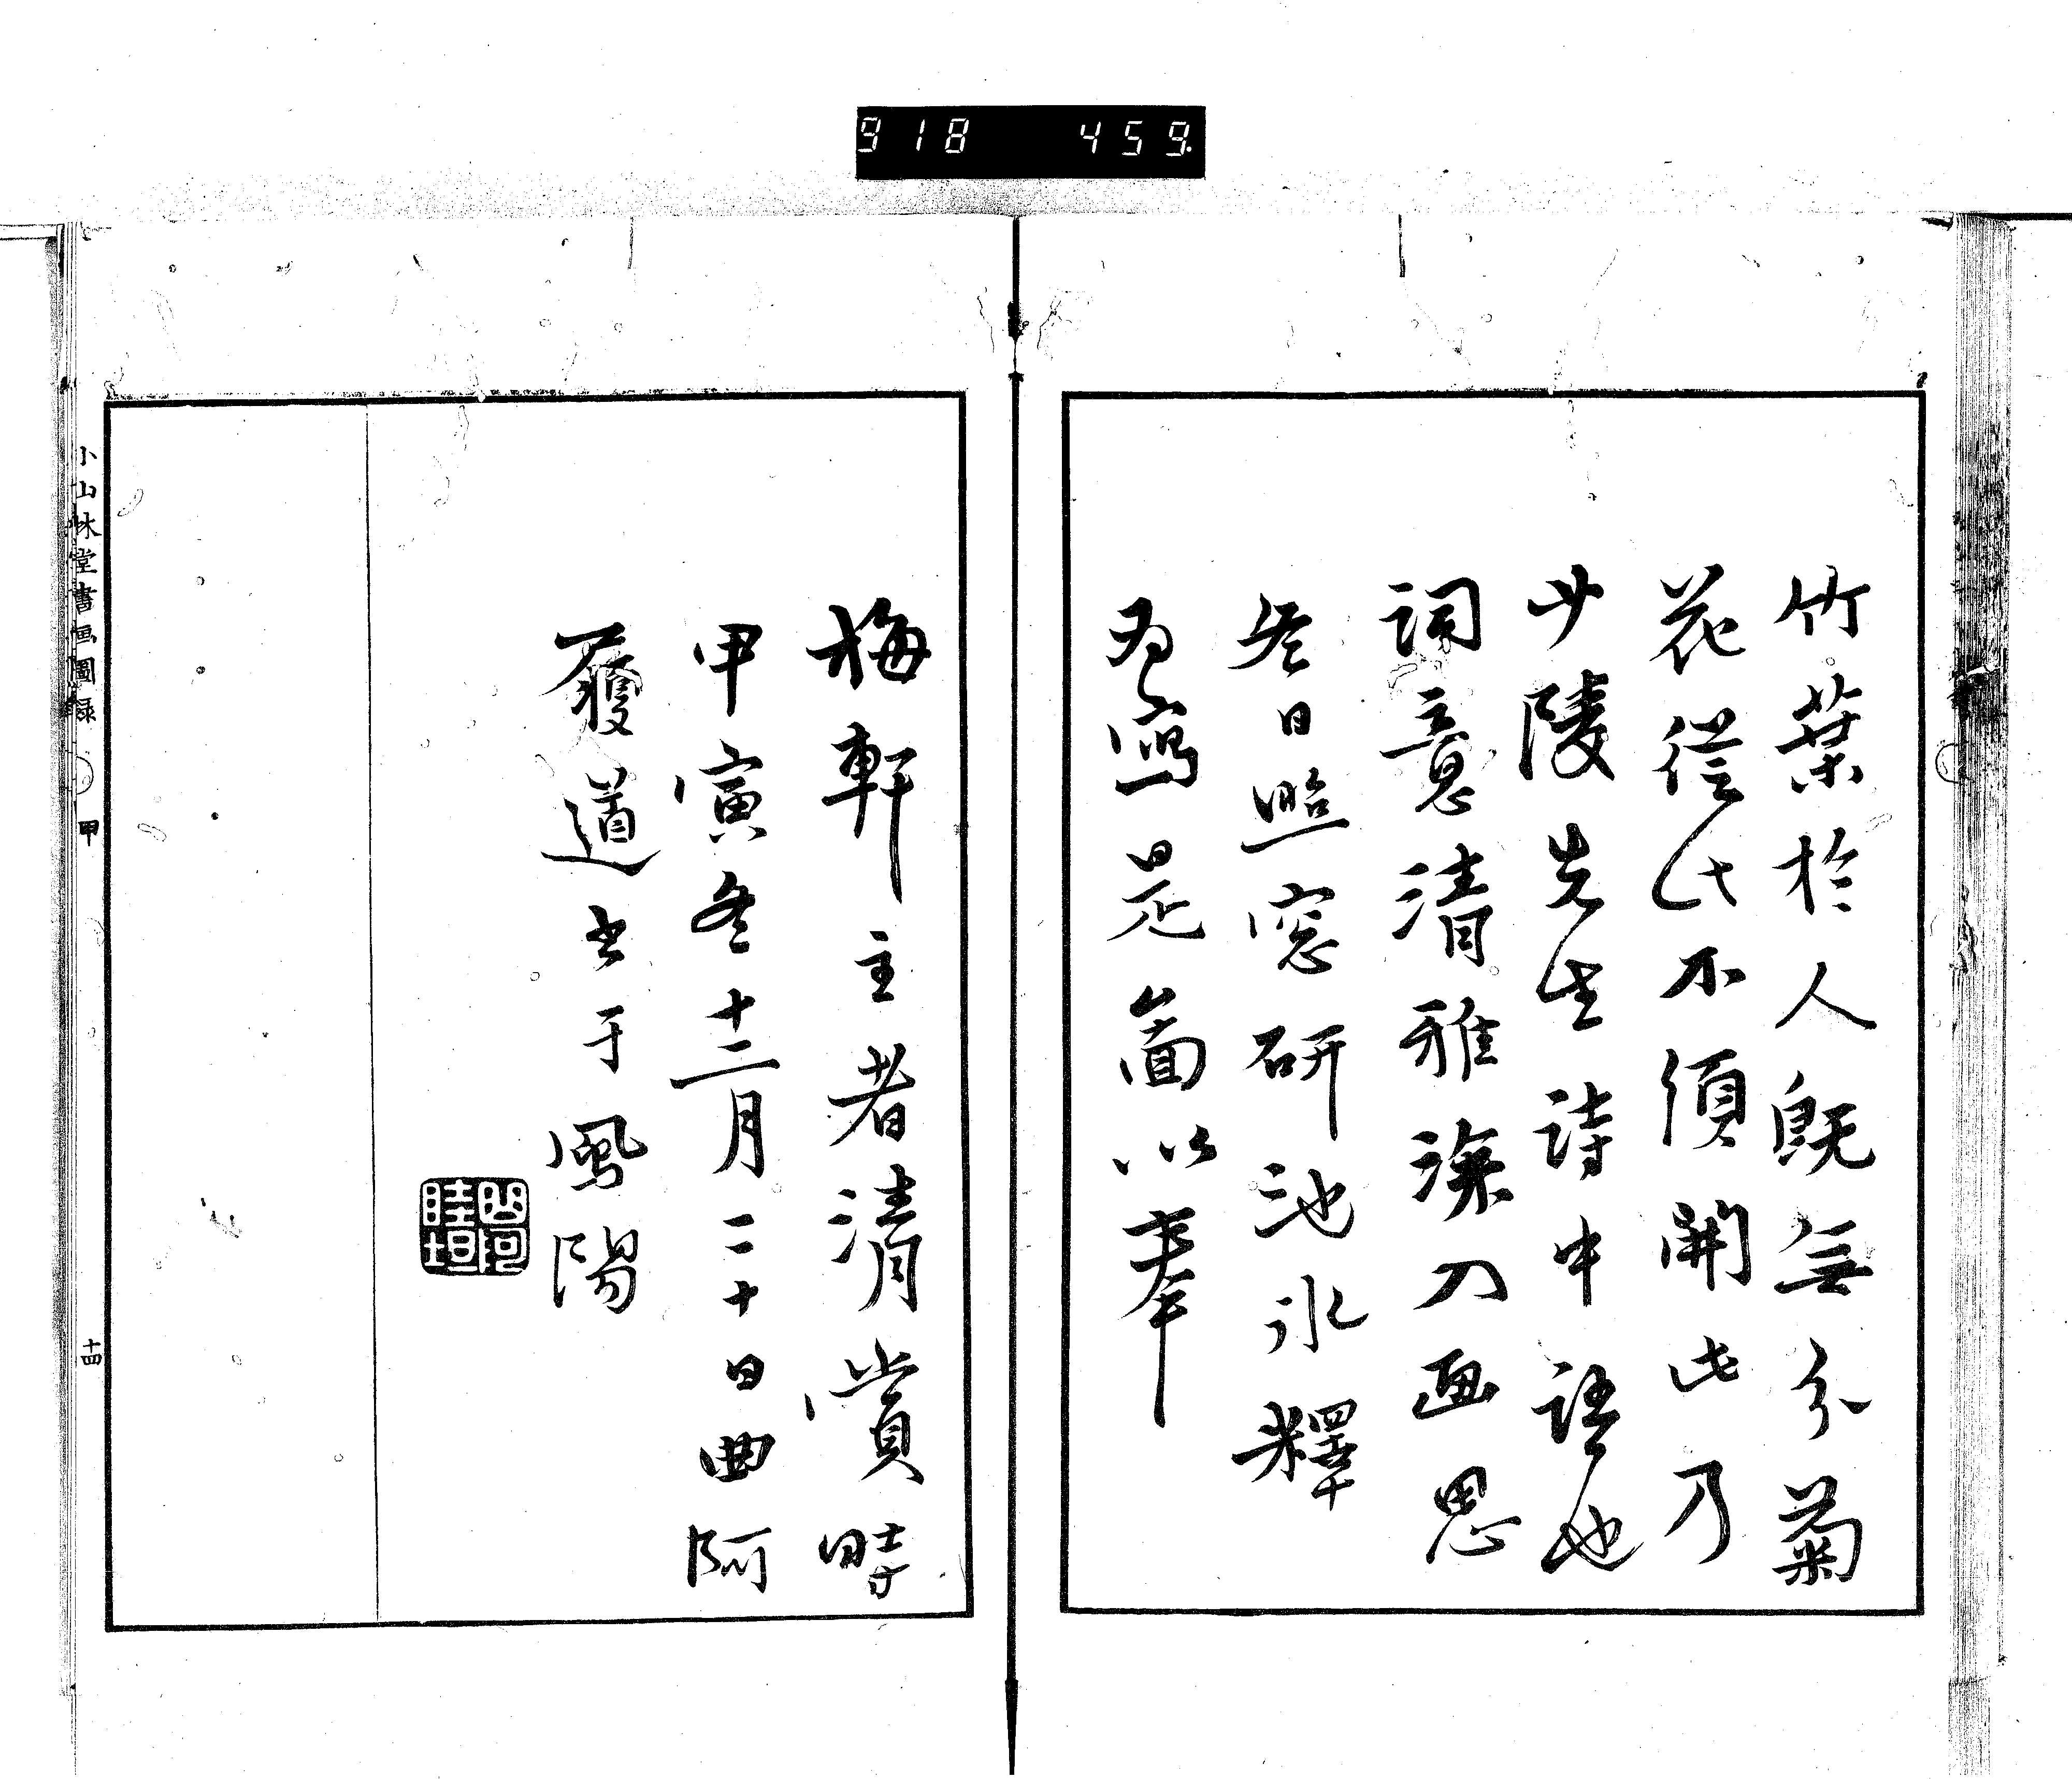 918 459
竹葉於人既無分菊
花從此不須開此乃
少陵先生詩中語也
詞意清雅深入画思
冬日照窓研池氷釋
為寫是啚以奉
梅軒主者清賞時
甲寅冬十二月二十日曲阿
履道書于鳳陽
小山林堂書画圖録
甲
十四